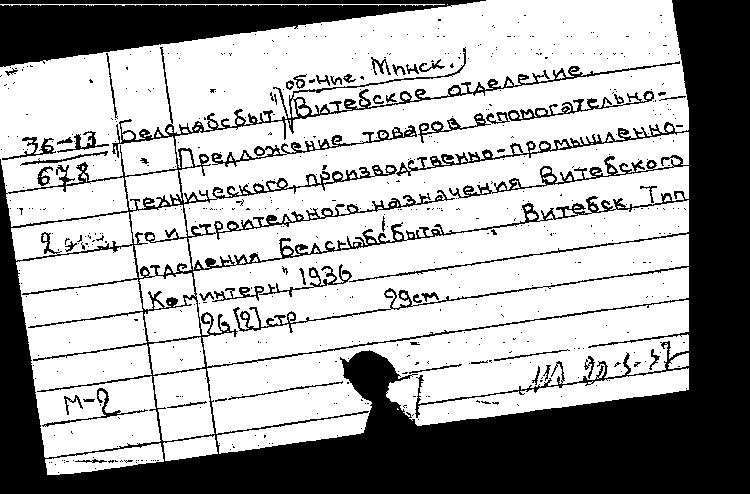 об-ние. Минск.
36-13
678
"Белснабсбыт," Витебское отделение.
Предложение товаров вспомогательно-
технического, производственно-промышленно-
го и строительного назначения Витебского
отделения Белснабсбыта. Витебск, Тип
"Коминтерн", 1936
26,[2] стр. 29см.
М-2
20-3-37